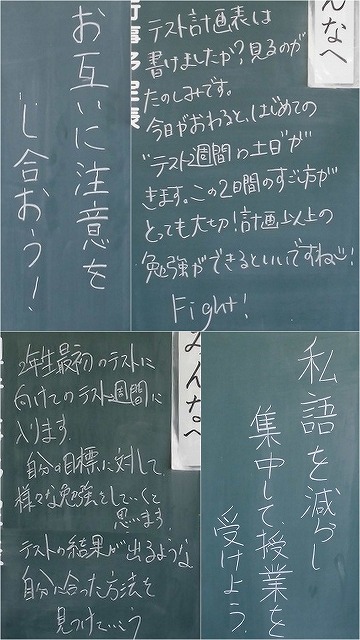 お互いに注意を
し合おう！
んなへ
テスト計画表は
書けましたか？見るのが
たのしみです。
今日がおわると、はじめての
"テスト2週間の土日"が
きます。この2日間のすごし方が
とっても大切！計画以上の
勉強ができるといいですね！
Fight！
みんなへ
2年生最初のテストに
向けてのテスト2週間に
入ります。
自分の目標に対して、
様々な勉強をしていくと
思います。
テストの結果が出るような
自分に合った方法を
見つけていこう
私語を減らし
集中して、授業を
受けよう。